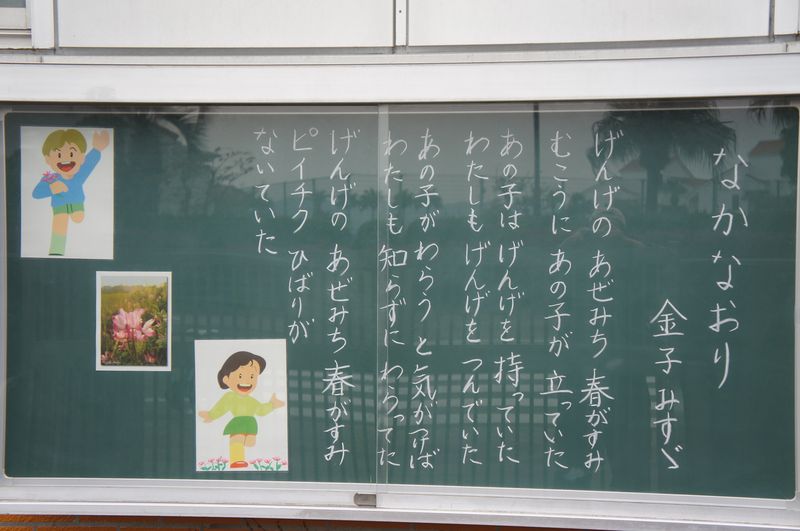 なかなおり
金子 みすゞ
げんげの あぜみち 春がすみ
むこうに あの子が 立っていた
あの子は げんげを 持っていた
わたしも げんげを つんでいた
あの子が わらう と 気が付けば
わたしも 知らずに わらってた
げんげの あぜみち 春がすみ
ピイチク ひばりが
ないていた